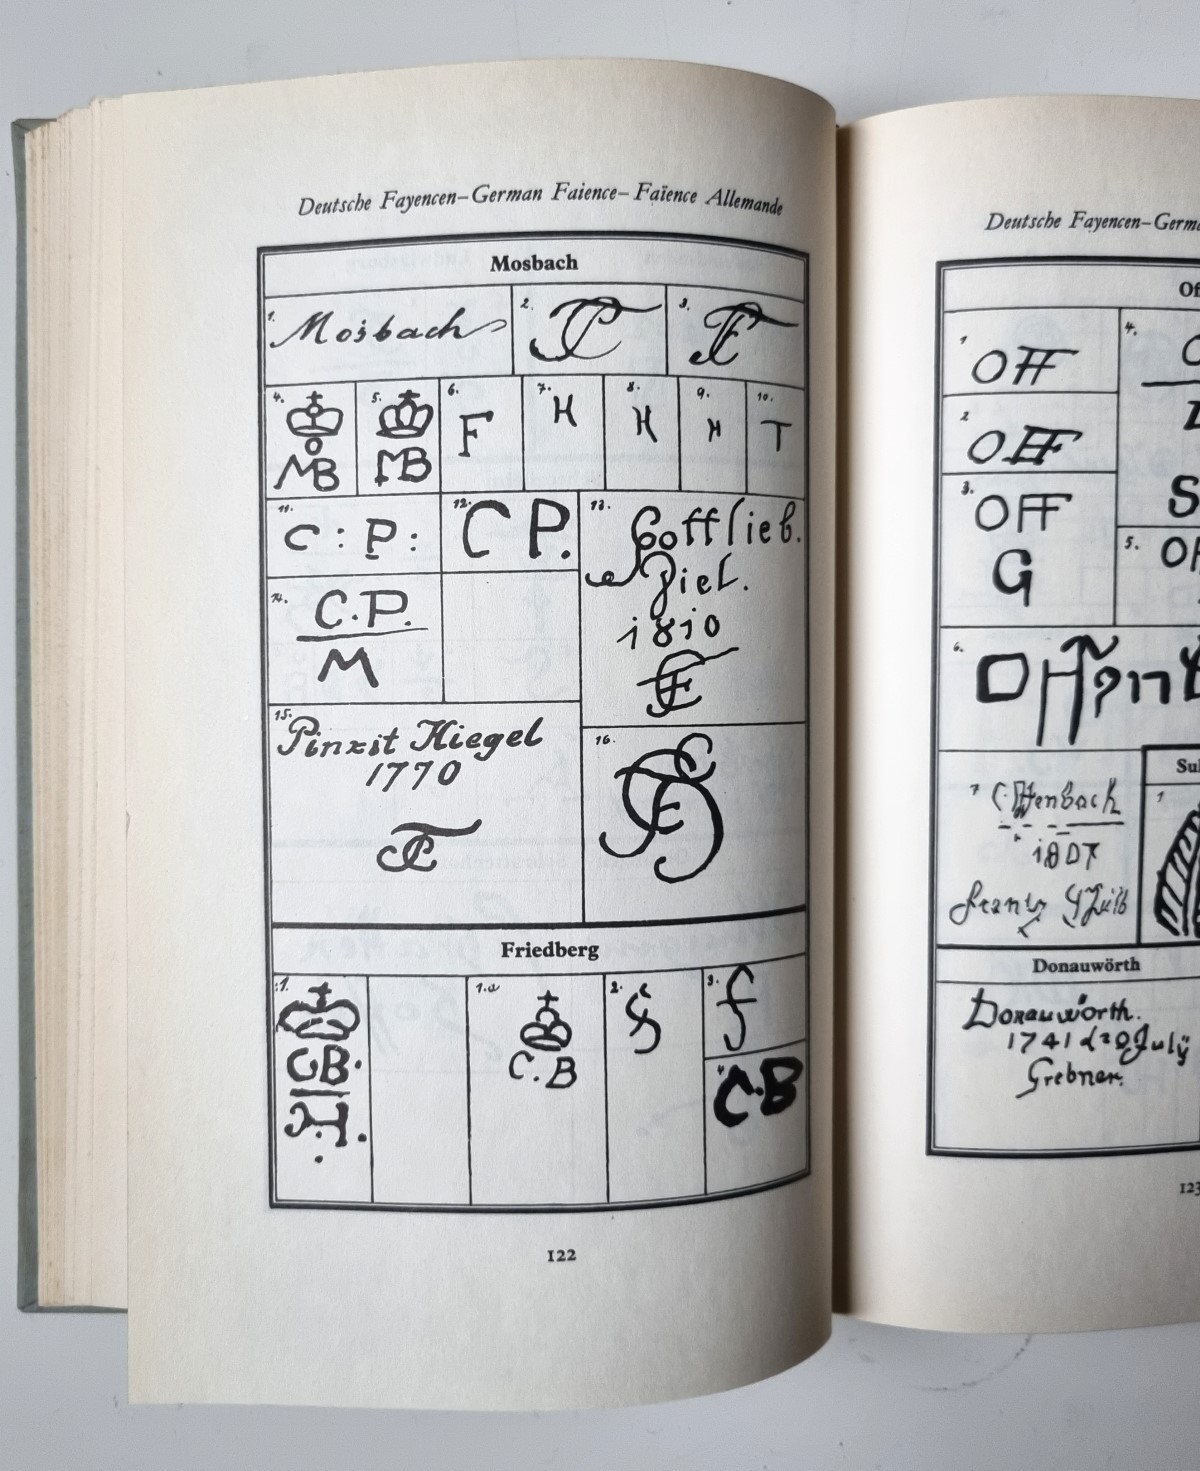 Deutsche Fayencen–German Faience–Faïence Allemande
Mosbach
1. Mosbach
2. CT
3.
4. MB
5. MB
6. F
7. H
8. H
9. H
10. T
11. C : P :
12. C P.
13. Gottlieb.
Ziel.
1810
14. C.P.
M
15. Pinxit Hiegel
1770
CT
16.
Friedberg
1. CB.
1.a C.B
2.
3. f
4. C.B
122
Deutsche Fayencen–Germ
Of
1 OFF
2 OFF
3. OFF
G
4.
S
5. OF
6.
Sul
7 Offenbach
1807
1
Donauwörth
Donauwörth.
1741 d 20 Julÿ
Grebner.
123